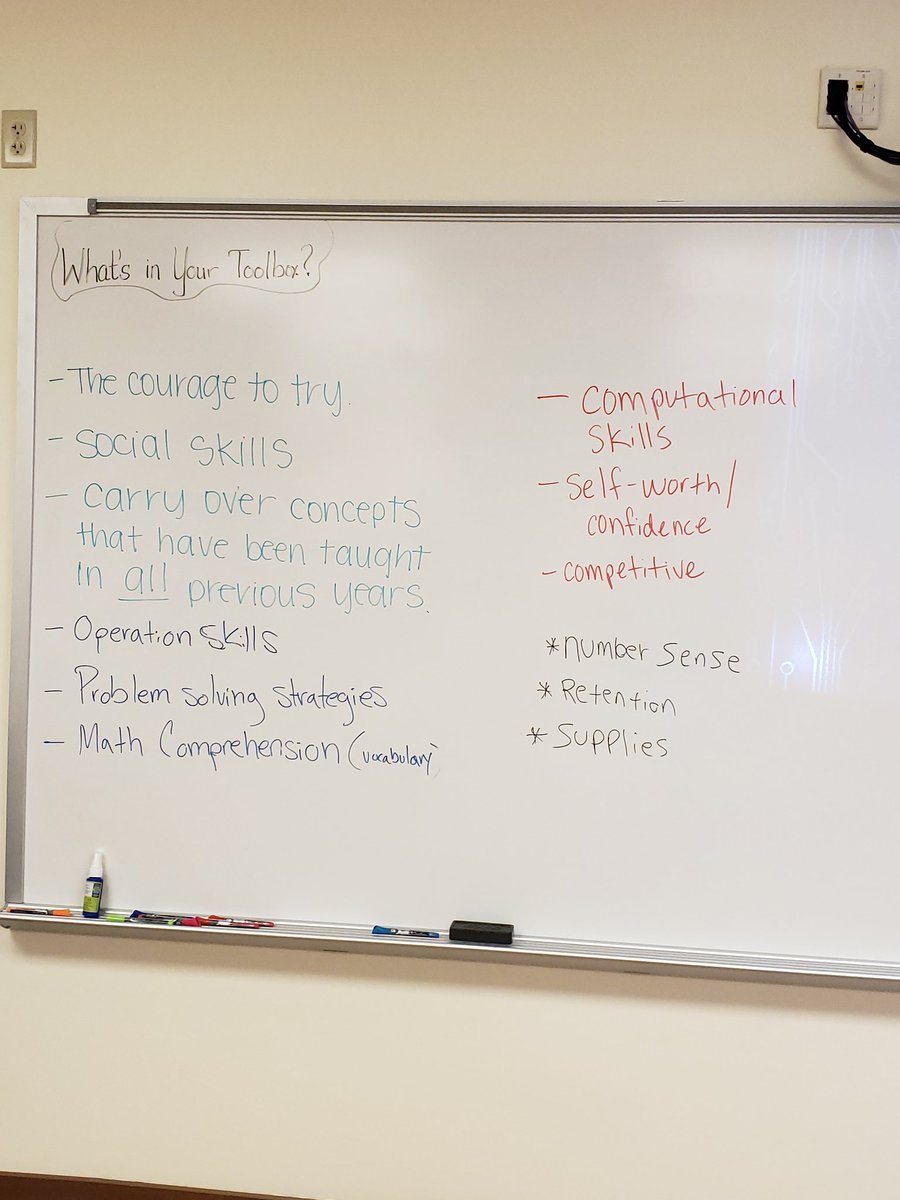 What's in Your Toolbox?
- The courage to try.
- social skills
- carry over concepts
that have been taught
in all previous years.
- Operation skills
- Problem solving strategies
- Math Comprehension (vocabulary)
- computational
skills
- self-worth/
confidence
- competitive
* number sense
* Retention
* Supplies